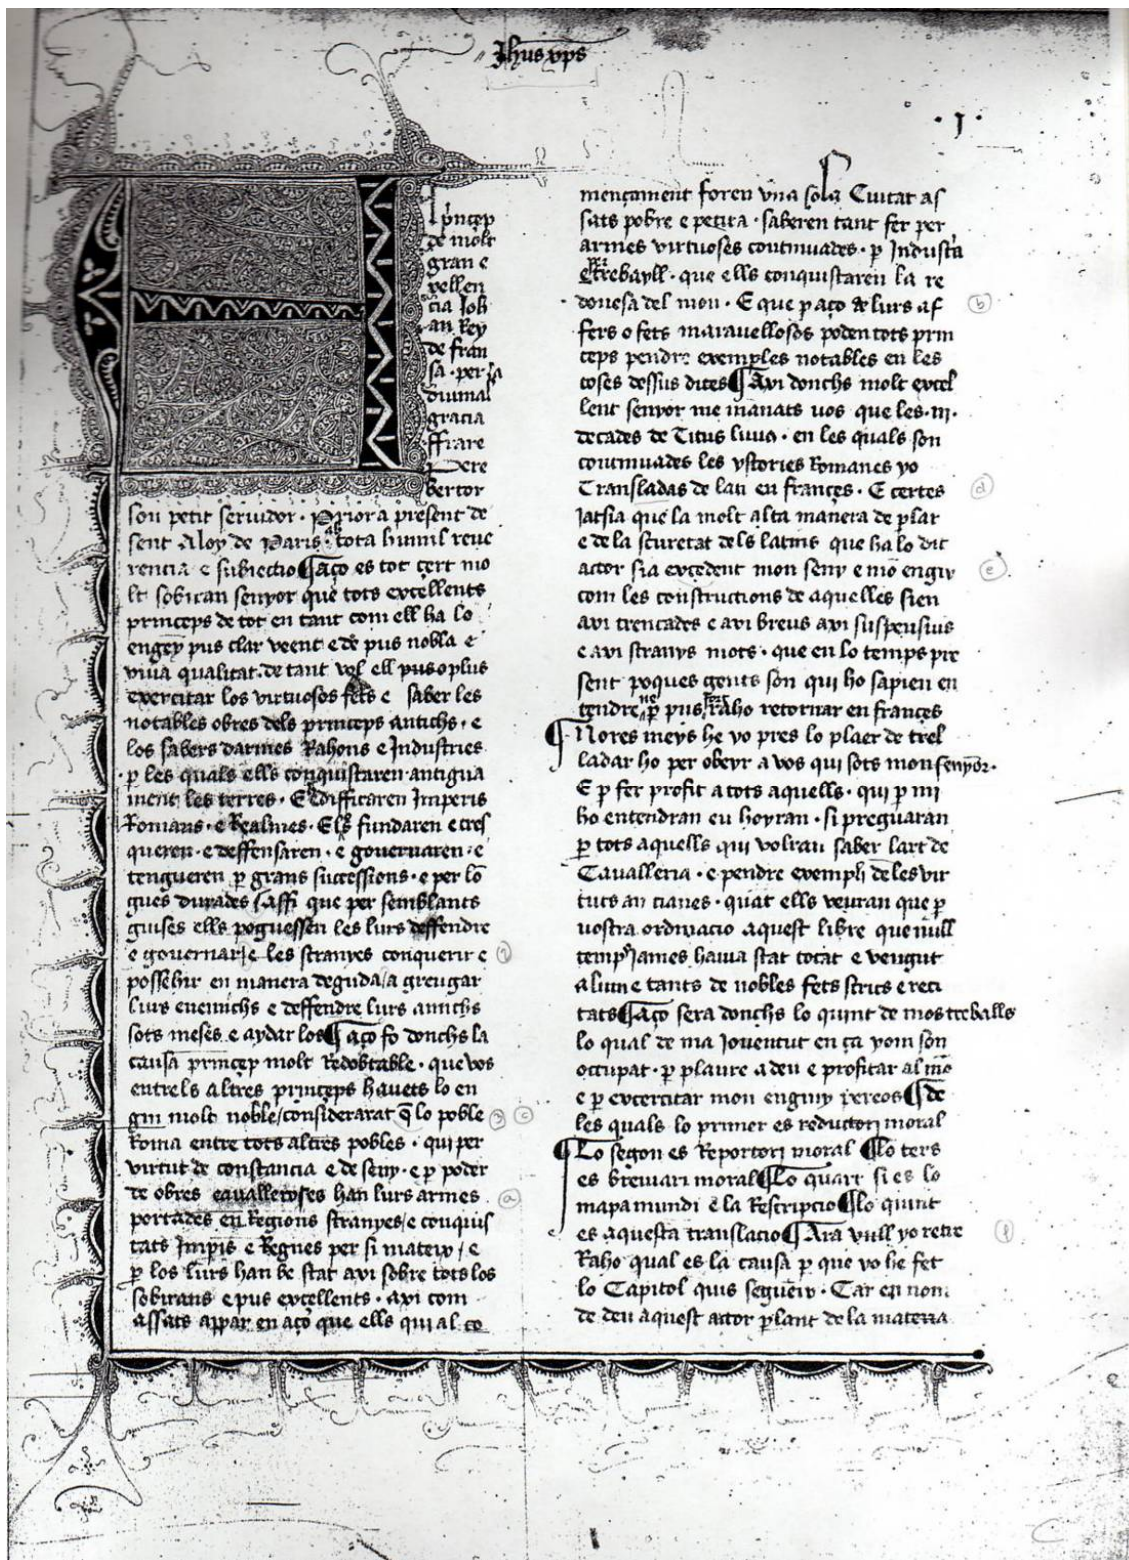 Jhus xps
· I ·
l princep
de molt
gran e
xellen
cia Joh
an Rey
de fran
sa · per la
diuinal
gracia
ffrare
Pere
bertor
son petit seruidor · Prior a present de
sent Aloy de Paris · ab tota humil reue
rencia e subiectio ¶ aço es tot çert mo
lt sobiran senyor que tots excellents
princeps de tot en tant com ell ha lo
engẽy pus clar veent e de pus nobla e
viua qualitat · de tant vol ell pus o plus
exercitar los virtuosos fets e saber les
notables obres dels princeps antichs · e
los sabers darmes Rahons e Industries
· p les quals ells conquistaren antigua
ment les terres · E edifficaren Imperis
Romans · e Realmes · Els fundaren e cres
queren · e deffensaren · e gouernaren · e
tengueren p grans successions · e per lõ
gues durades / Assi que per semblants
guises ells poguessen les lurs deffendre
e gouernar / e les stranyes conquerir e
possehir en manera deguda / a greugar
lurs enemichs e deffendre lurs amichs
sots meses e aydar los ¶ aço fo donchs la
causa princep molt Redobtable · que vos
entrels altres princeps hauets lo en
gin molt noble / considerarat q̃ lo poble
Roma entre tots altres pobles · qui per
virtut de constancia e de seny · e p poder
de obres caualleroses han lurs armes
portades en Regions stranyes / e conquis
tats Impis e Regnes per si mateix / e
p los lurs han be stat axi sobre tots los
sobirans e pus excellents · axi com
assats appar en aço que ells qui al co
mençament foren vna sola Ciutat as
sats pobre e petita · saberen tant fer per
armes virtuoses continuades · p Industa
e trebayll · que ells conquistaren la re
donesa del mon · E que p aço de lurs af
fers o fets marauellosos poden tots prin
ceps pendre exemples notables en les
coses dessus dites ¶ Axi donchs molt excel
lent senyor me manats uos que les · III ·
decades de Titus liuus · en les quals son
continuades les ystories Romanes yo
Transladas de lati en françes · E certes
Jatsia que la molt alta manera de plar
e de la scuretat dels latins que ha lo dit
actor sia excedent mon seny e mõ engin
com les constructions de aquelles sien
axi trencades e axi breus axi suspensius
e axi stranys mots · que en lo temps pre
sent poques gents son qui ho sapien en
tendre ne p pus fer raho retornar en frances
¶ Nores meys he yo pres lo plaer de tres
ladar ho per obeyr a vos qui sots mon senyor ·
E p fer profit a tots aquells · qui p mi
ho entendran eu hoyran · si preguaran
p tots aquells qui volran saber lart de
Caualleria · e pendre exempli de les vir
tuts an cianes · quat ells veuran que p
uostra ordinacio aquest libre que null
temps James hauia stat tocat e vengut
a lum e tants de nobles fets scrits e reci
tats ¶ aço sera donchs lo quint de mos treballs
lo qual de ma Jouentut en ça yom son
occupat · p plaure a deu e profitar al mõ
e p excercitar mon enginy pereos ¶ de
les quals lo primer es reductori moral
¶ Lo segon es Repertori moral ¶ lo ters
es breuiari moral ¶ Lo quart si es lo
mapa mundi e la Rescripcio ¶ lo quint
es aquesta translacio ¶ Ara vull yo retre
Raho qual es la causa p que yo he fet
lo Capitol quis segueix · Car en nom
de deu aquest actor plant de la materia